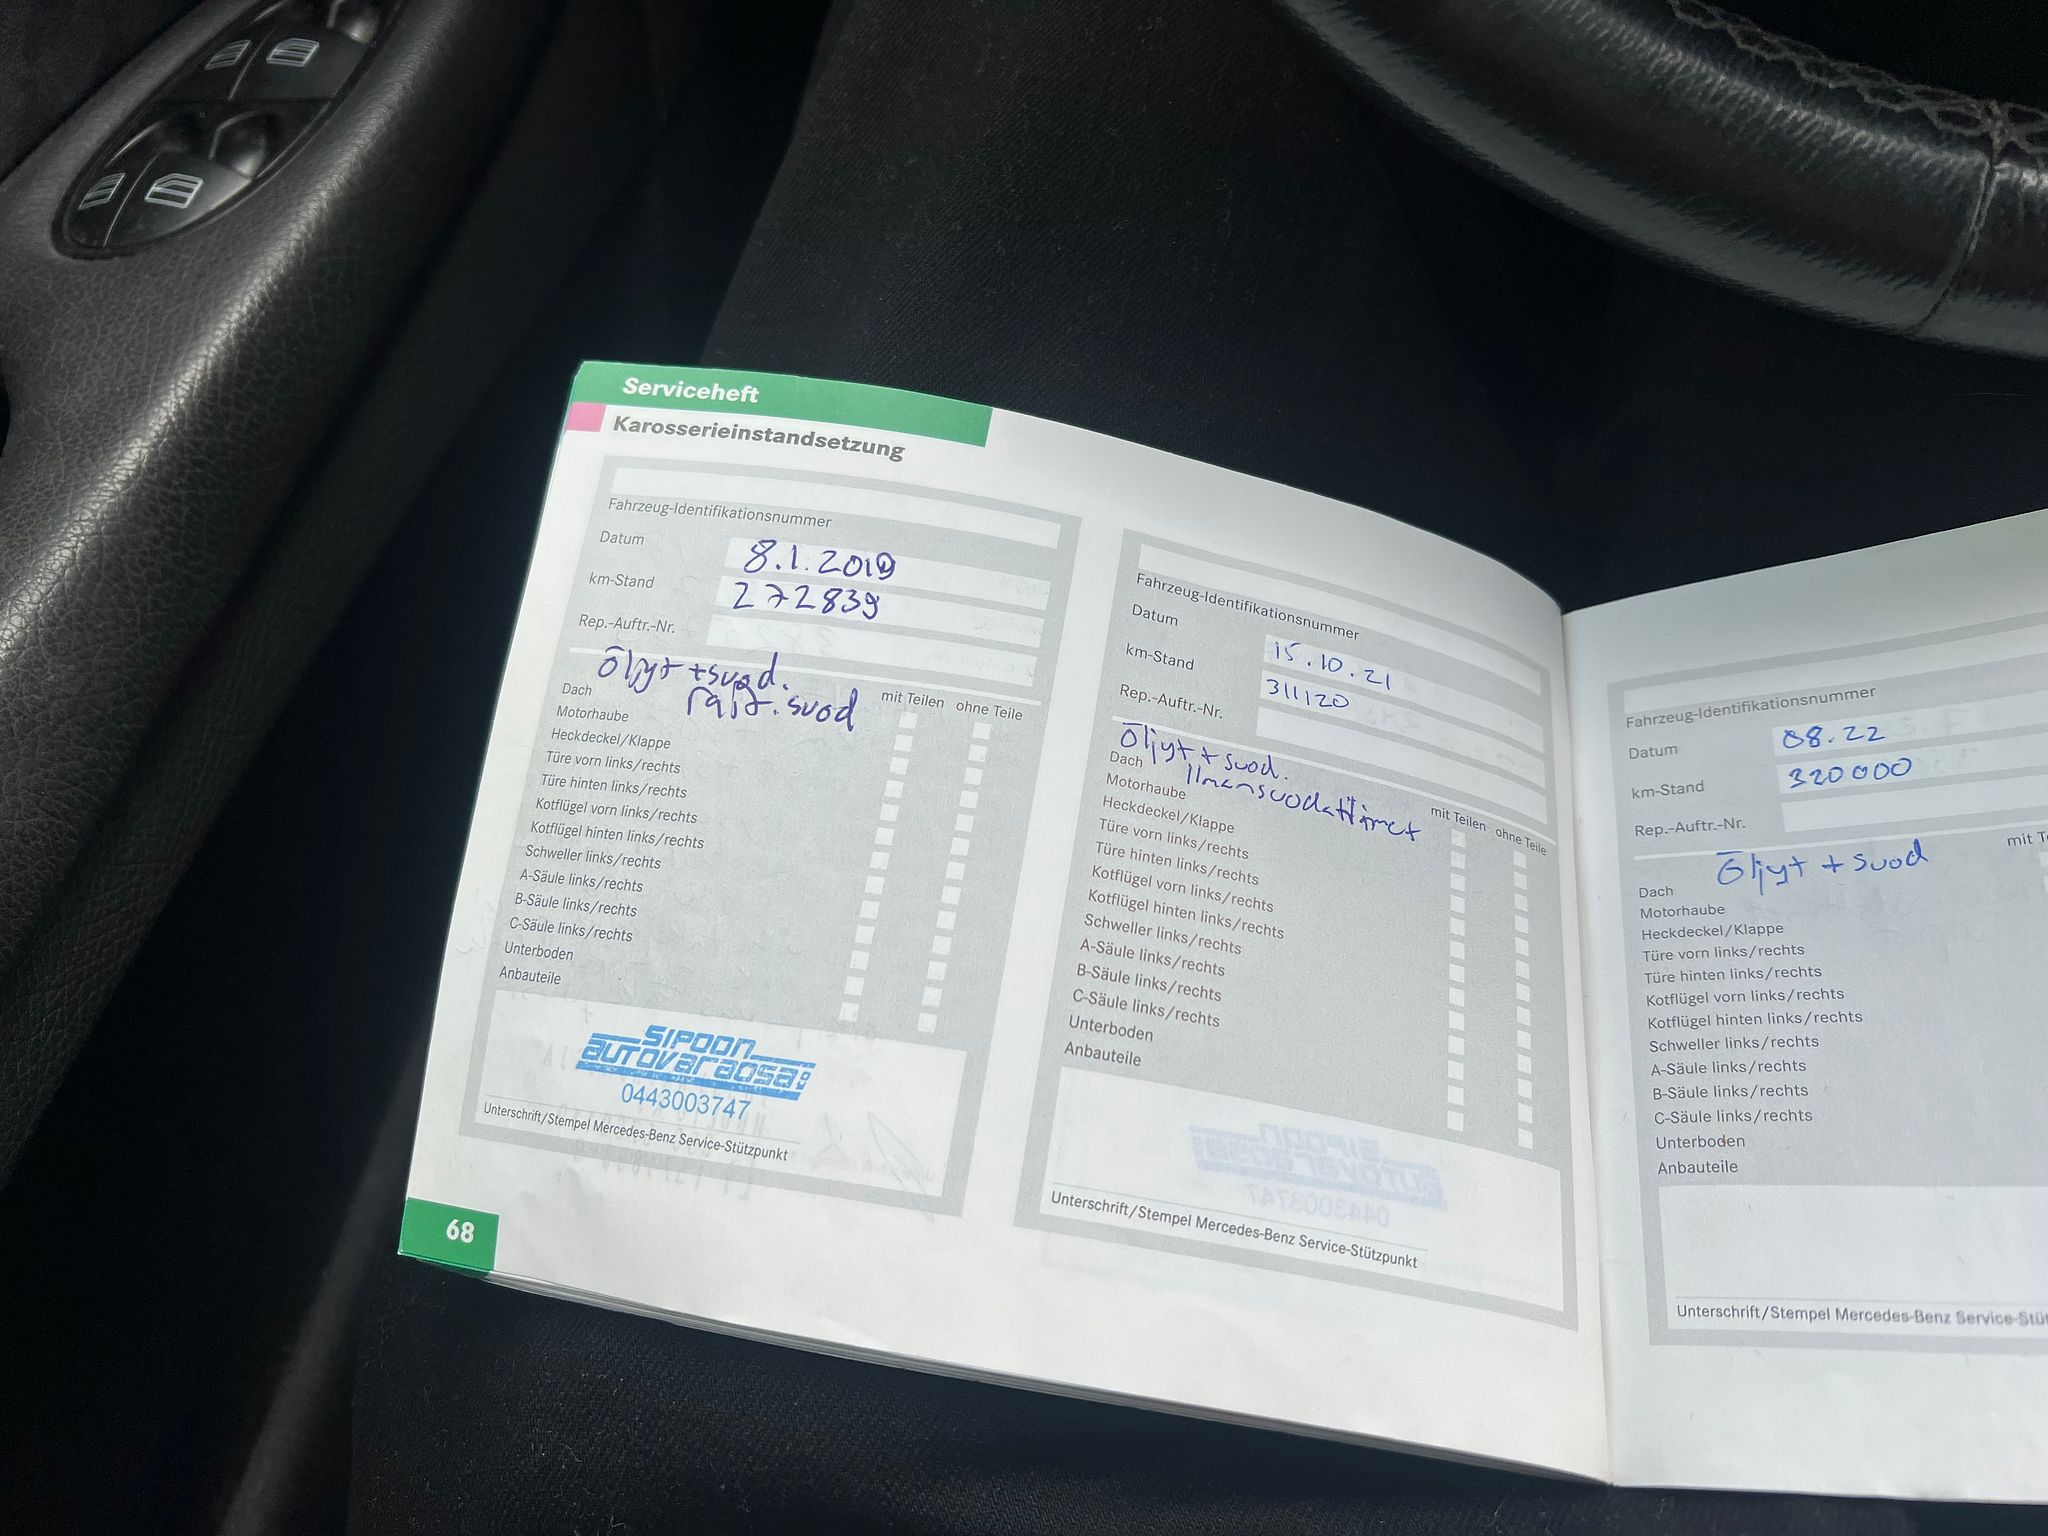 Serviceheft
Karosserieinstandsetzung
Fahrzeug-Identifikationsnummer
Datum 8.1.2019
km-Stand 272839
Rep.-Auftr.-Nr.
Öljyt + suod.
rajt. suod
mit Teilen ohne Teile
Dach
Motorhaube
Heckdeckel/Klappe
Türe vorn links/rechts
Türe hinten links/rechts
Kotflügel vorn links/rechts
Kotflügel hinten links/rechts
Schweller links/rechts
A-Säule links/rechts
B-Säule links/rechts
C-Säule links/rechts
Unterboden
Anbauteile
SIPOON
AUTOVARAOSA
0443003747
Unterschrift/Stempel Mercedes-Benz Service-Stützpunkt
68
Fahrzeug-Identifikationsnummer
Datum 15.10.21
km-Stand 311120
Rep.-Auftr.-Nr.
Öljyt + suod.
mit Teilen ohne Teile
Dach
Motorhaube
Heckdeckel/Klappe
Türe vorn links/rechts
Türe hinten links/rechts
Kotflügel vorn links/rechts
Kotflügel hinten links/rechts
Schweller links/rechts
A-Säule links/rechts
B-Säule links/rechts
C-Säule links/rechts
Unterboden
Anbauteile
Unterschrift/Stempel Mercedes-Benz Service-Stützpunkt
Fahrzeug-Identifikationsnummer
Datum 08.22
km-Stand 320000
Rep.-Auftr.-Nr.
Öljyt + suod
mit
Dach
Motorhaube
Heckdeckel/Klappe
Türe vorn links/rechts
Türe hinten links/rechts
Kotflügel vorn links/rechts
Kotflügel hinten links/rechts
Schweller links/rechts
A-Säule links/rechts
B-Säule links/rechts
C-Säule links/rechts
Unterboden
Anbauteile
Unterschrift/Stempel Mercedes-Benz Service-Stü